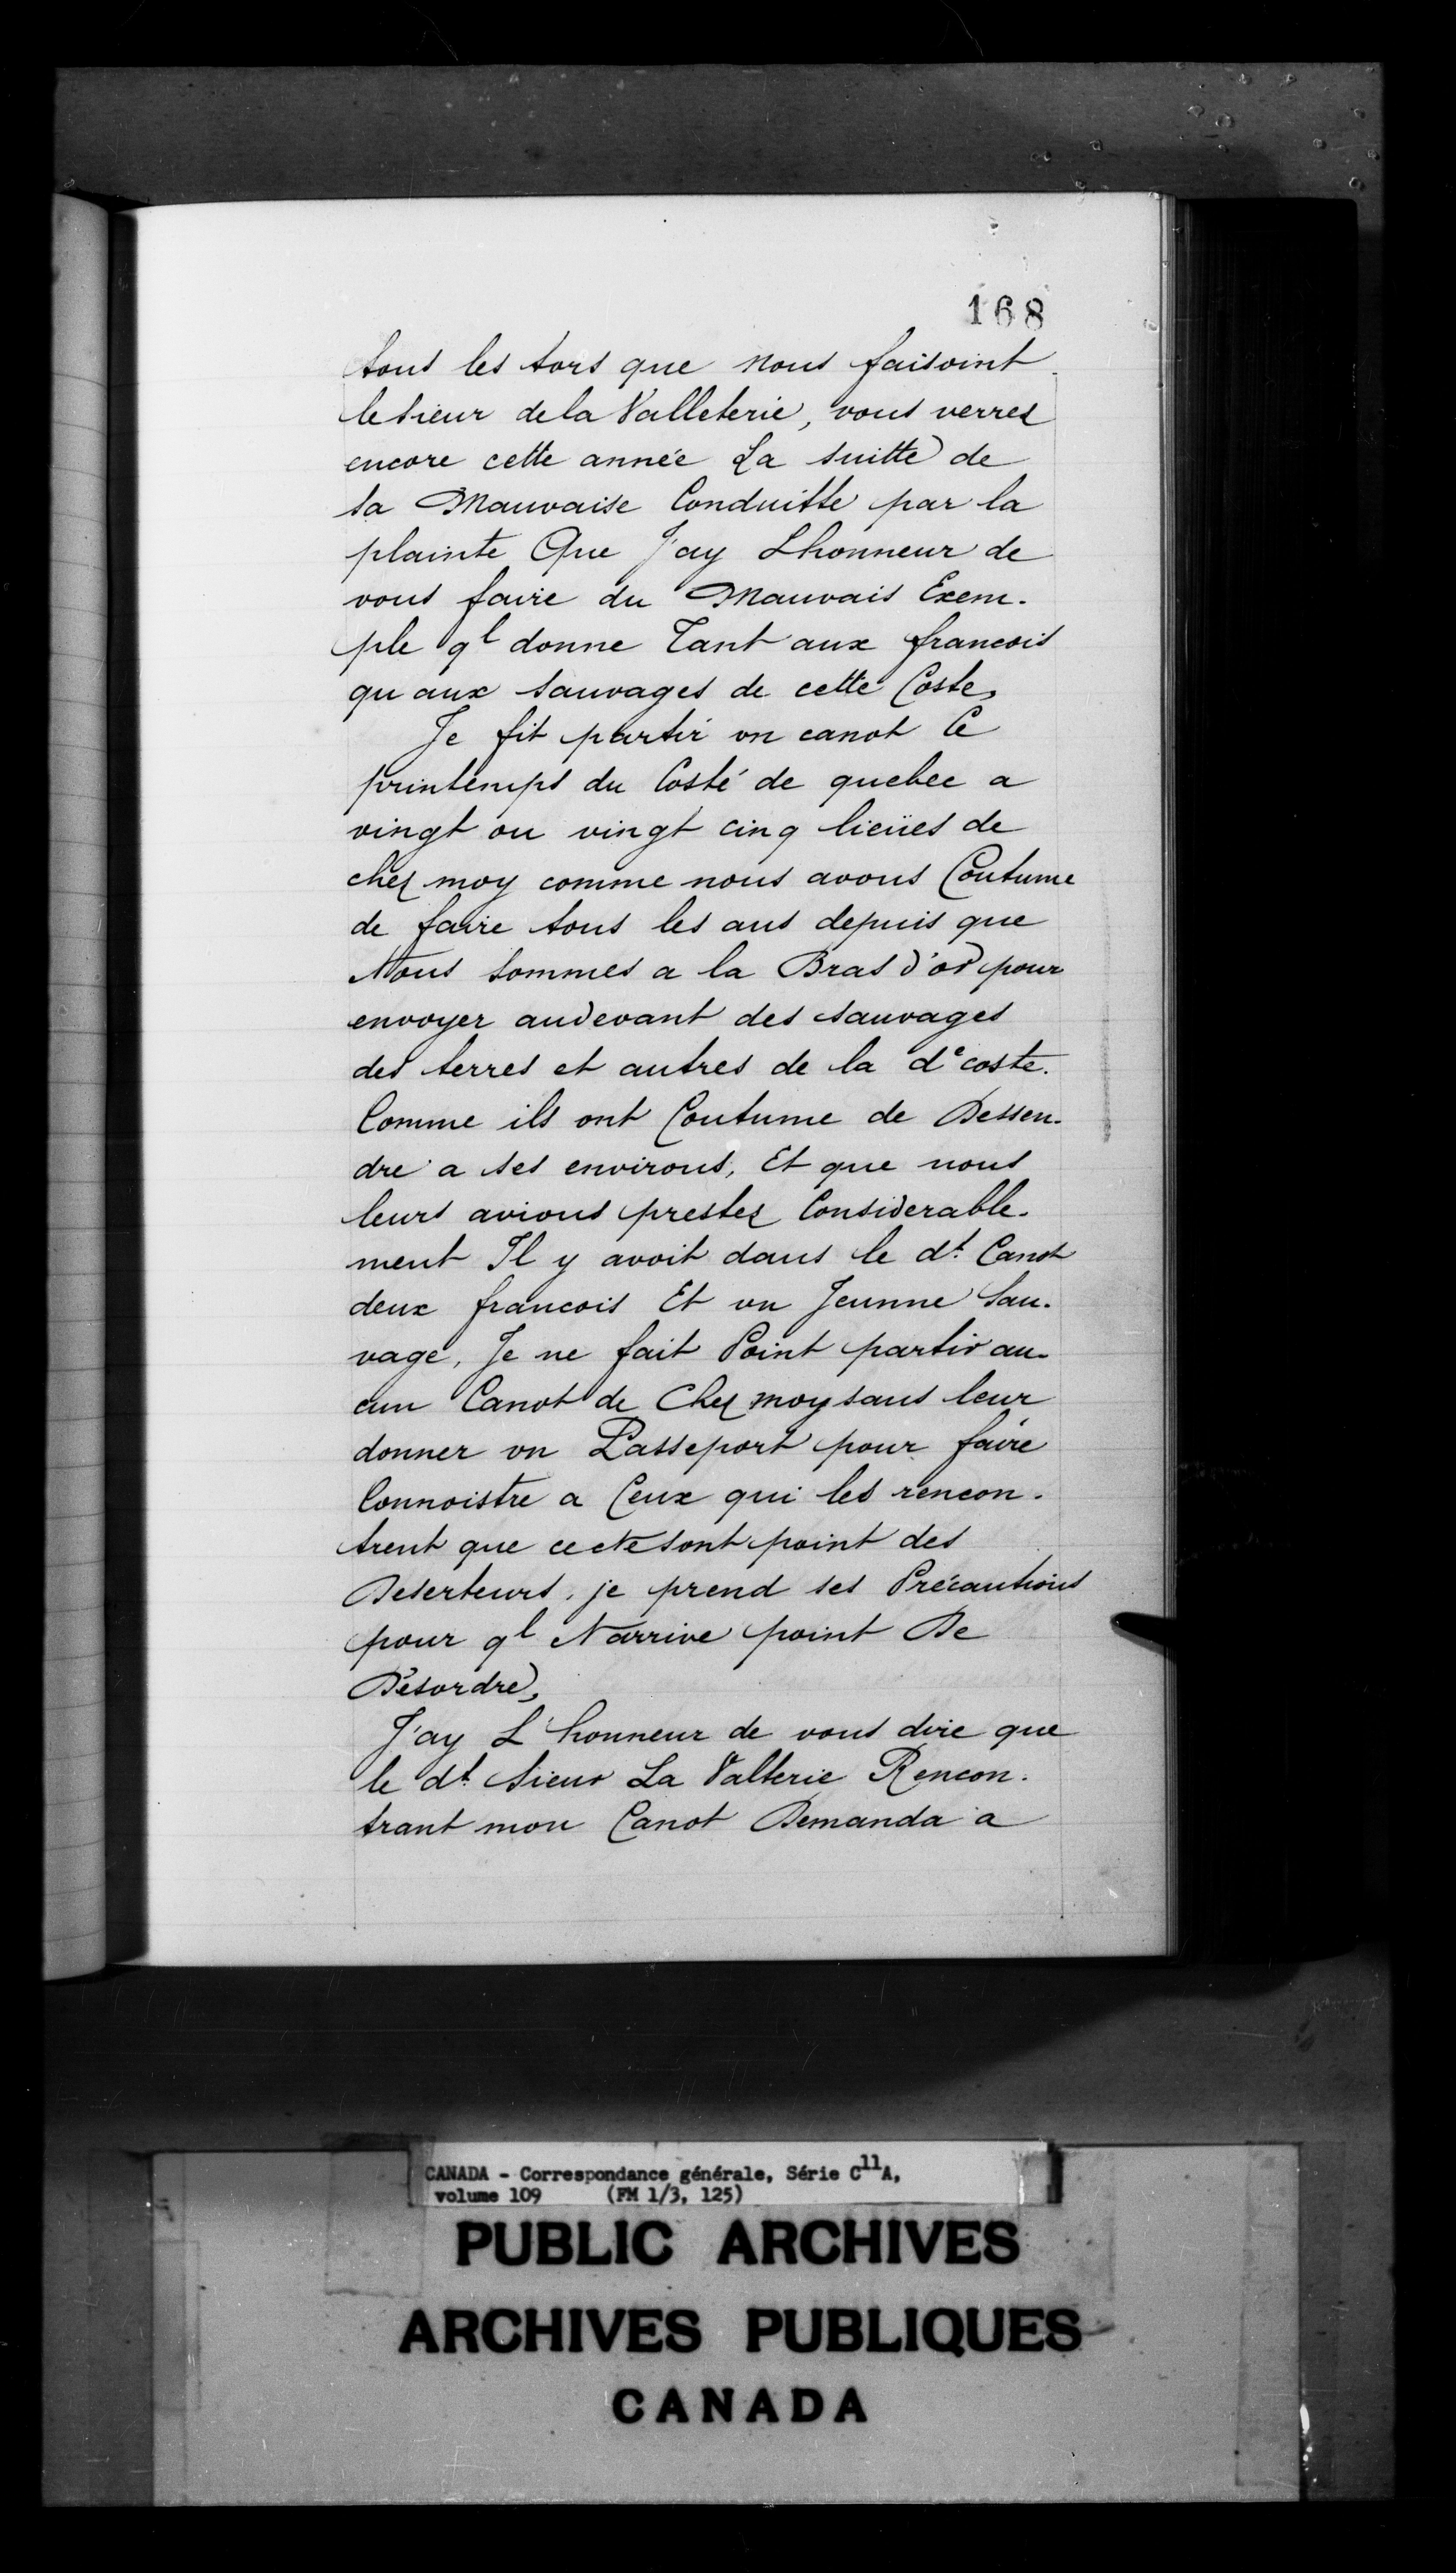 168
tous les tors que nous faisoint
le sieur de la Valleterie, vous verrez
encore cette année La suitte de
sa Mauvaise Conduitte par la
plainte Que J'ay Lhonneur de
vous faire du Mauvais Exem-
ple ql donne Tant aux francois
qu aux sauvages de cette Coste,
Je fit partir un canot Ce
printemps du Costé de quebec a
vingt ou vingt cinq lieües de
chez moy comme nous avons Coutume
de faire tous les ans depuis que
Nous sommes a la Bras d'or pour
envoyer audevant des sauvages
des terres et autres de la de coste.
Comme ils ont Coutume de Dessen-
dre a ses environs, Et que nous
leurs avions prestez Considerable-
ment Il y avoit dans le dt. Canot
deux francois Et un Jeunne Sau-
vage, Je ne fait Point partir au-
cun Canot de Chez moy sans leur
donner un Passeport pour faire
Connoistre a Ceux qui les rencon-
trent que ce Ne sont point des
Deserteurs, je prend ses Précautions
pour ql Narrive point De
Désordre,
J'ay L'honneur de vous dire que
le dt. Sieur La Valterie Rencon-
trant mon Canot Demanda a
CANADA - Correspondance générale, Série C11A,
volume 109 (FM 1/3, 125)
PUBLIC ARCHIVES
ARCHIVES PUBLIQUES
CANADA